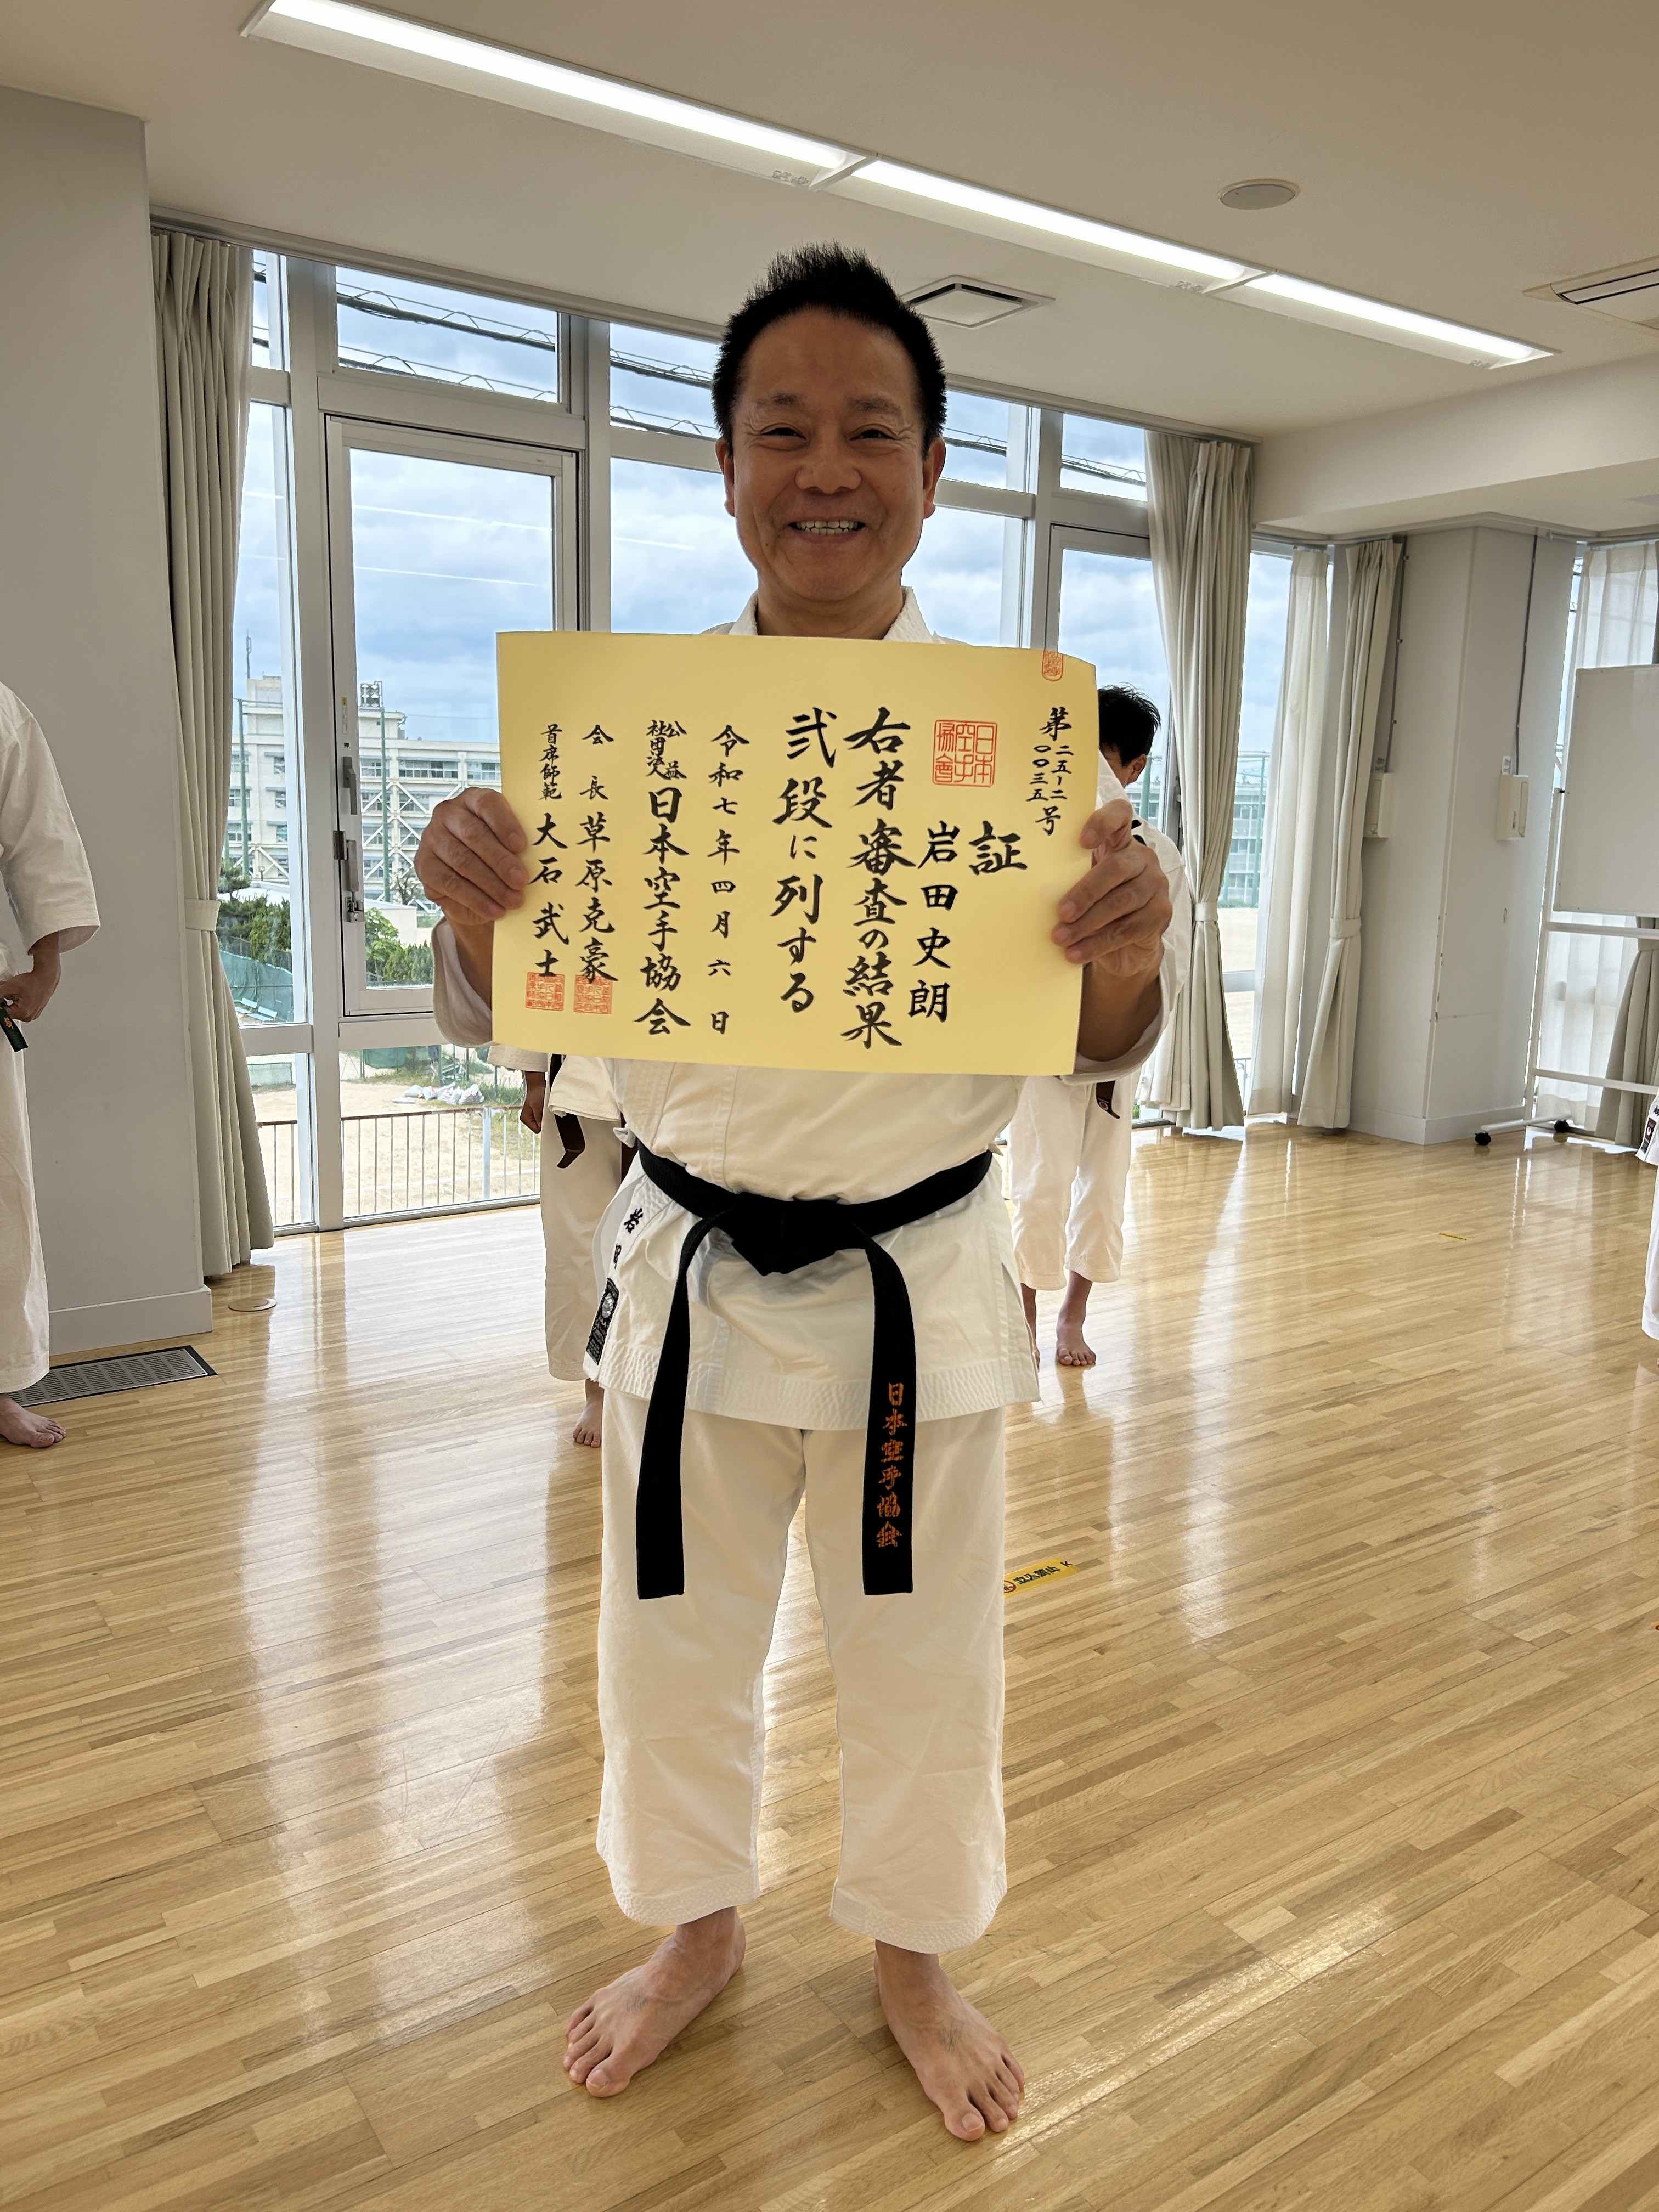 第二五-二〇〇三五号
日本空手協會
証
岩田史朗
右者審査の結果
弐段に列する
令和七年四月六日
公益社団法人日本空手協会
会長草原克豪
首席師範大石武士
岩田
日本空手協会